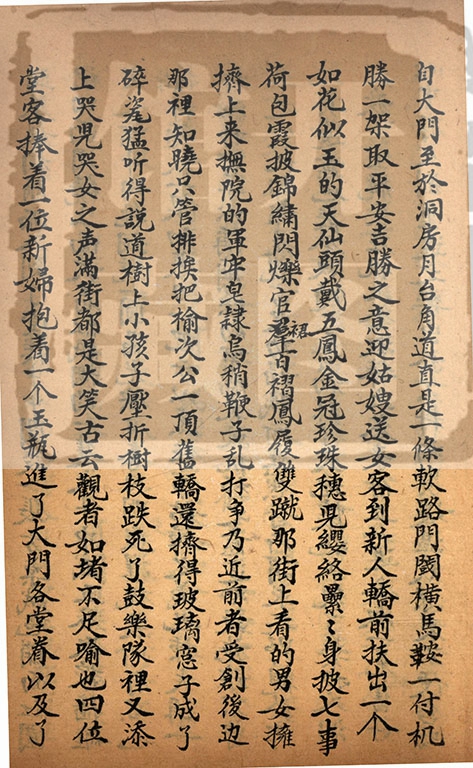 自大門至於洞房月台甬道直是一條軟路門閾橫馬鞍一付机
勝一架取平安吉勝之意迎姑嫂送女客到新人轎前扶出一个
如花似玉的天仙頭戴五鳳金冠珍珠穗児纓絡纍〻身披七事
荷包霞披錦繡閃爍官裙百褶鳳履雙蹴那街上看的男女擁
擠上来撫院的軍牢皂隸烏稍鞭子乱打争乃近前者受創後边
那裡知曉只管排挨把榆次公一頂舊轎還擠得玻璃窓子成了
碎瓷猛听得説道樹上小孩子壓折樹枝跌死了鼓樂隊裡又添
上哭児哭女之声滿街都是大笑古云觀者如堵不足喻也四位
堂客捧着一位新婦抱着一个玉瓶進了大門各堂眷以及了